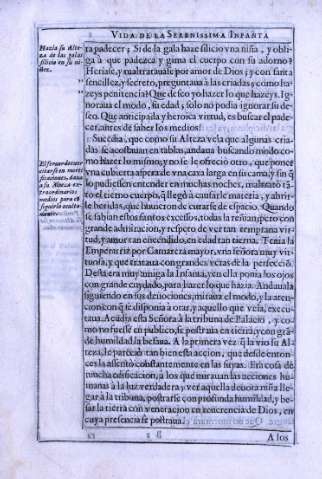 VIDA DE LA SERENISSIMA INFANTA
Hazia su Alte-
za de las galas
silicio en su ni-
ñez.
ra padecer; Si de la gala haze silicio vna niña, y obli-
ga à que padezca y gima el cuerpo con su adorno?
Heriase, y maltratauase por amor de Dios; y con santa
senzillez, y secreto, preguntaua à las criadas, y cómo ha-
zeys penitencia? Que deseo yo hazer lo que hazeys. Ig-
noraua el modo, su edad, solo no podia ignorar su de-
seo. Que anticipada y heroica virtud, es buscar el pade-
cer, antes de saber los medios!
Supo, que como su Alteza veía que algunas cria-
das se acostauan en tablas, andaua buscando modo co-
mo hazer lo mismo, y no se le ofreciò otro, que poner
vna cubierta aspera de vna caxa larga en su cama, y sin q̃
lo pudiessen entender en muchas noches, maltratò tã-
to el tierno cuerpo, q̃ llegò à causarle materia, y abrir-
le heridas, que huuieron de curarse de espacio. Quando
se sabian estos santos excessos, todas la reñian, pero con
grande admiracion, y respeto de ver tan temprana vir-
tud, y amor tan encendido, en edad tan tierna. Tenia la
Emperatriz por Camarera mayor, vna señora muy vir-
tuosa, y que trataua con grandes veras de la perfecciõ.
Desta era muy amiga la Infanta, y en ella ponia los ojos
con grande cuydado, para hazer lo que hazia. Andauala
siguiendo en sus deuociones, miraua el modo, y la aten-
cion con q̃ te disponia à orar, y aquello que veía, execu-
taua. Acudia esta Señora à la tribuna de Palacio, y co-
mo no fuesse en publico, se postraua en tierra, y con grã-
de humildad la besaua. A la primera vez q̃ la viò su Al-
teza, le pareciò tan bien esta accion, que desde enton-
ces la assentò constantemente en las suyas. Era cosa de
mucha edificacion, à los que mirauan las acciones hu-
manas à la luz verdadera, ver aquella deuota niña lle-
gar à la tribuna, postrarse con profunda humildad, y be-
sar la tierra con veneracion en reuerencia de Dios, en
cuya presencia se postraua.
A los